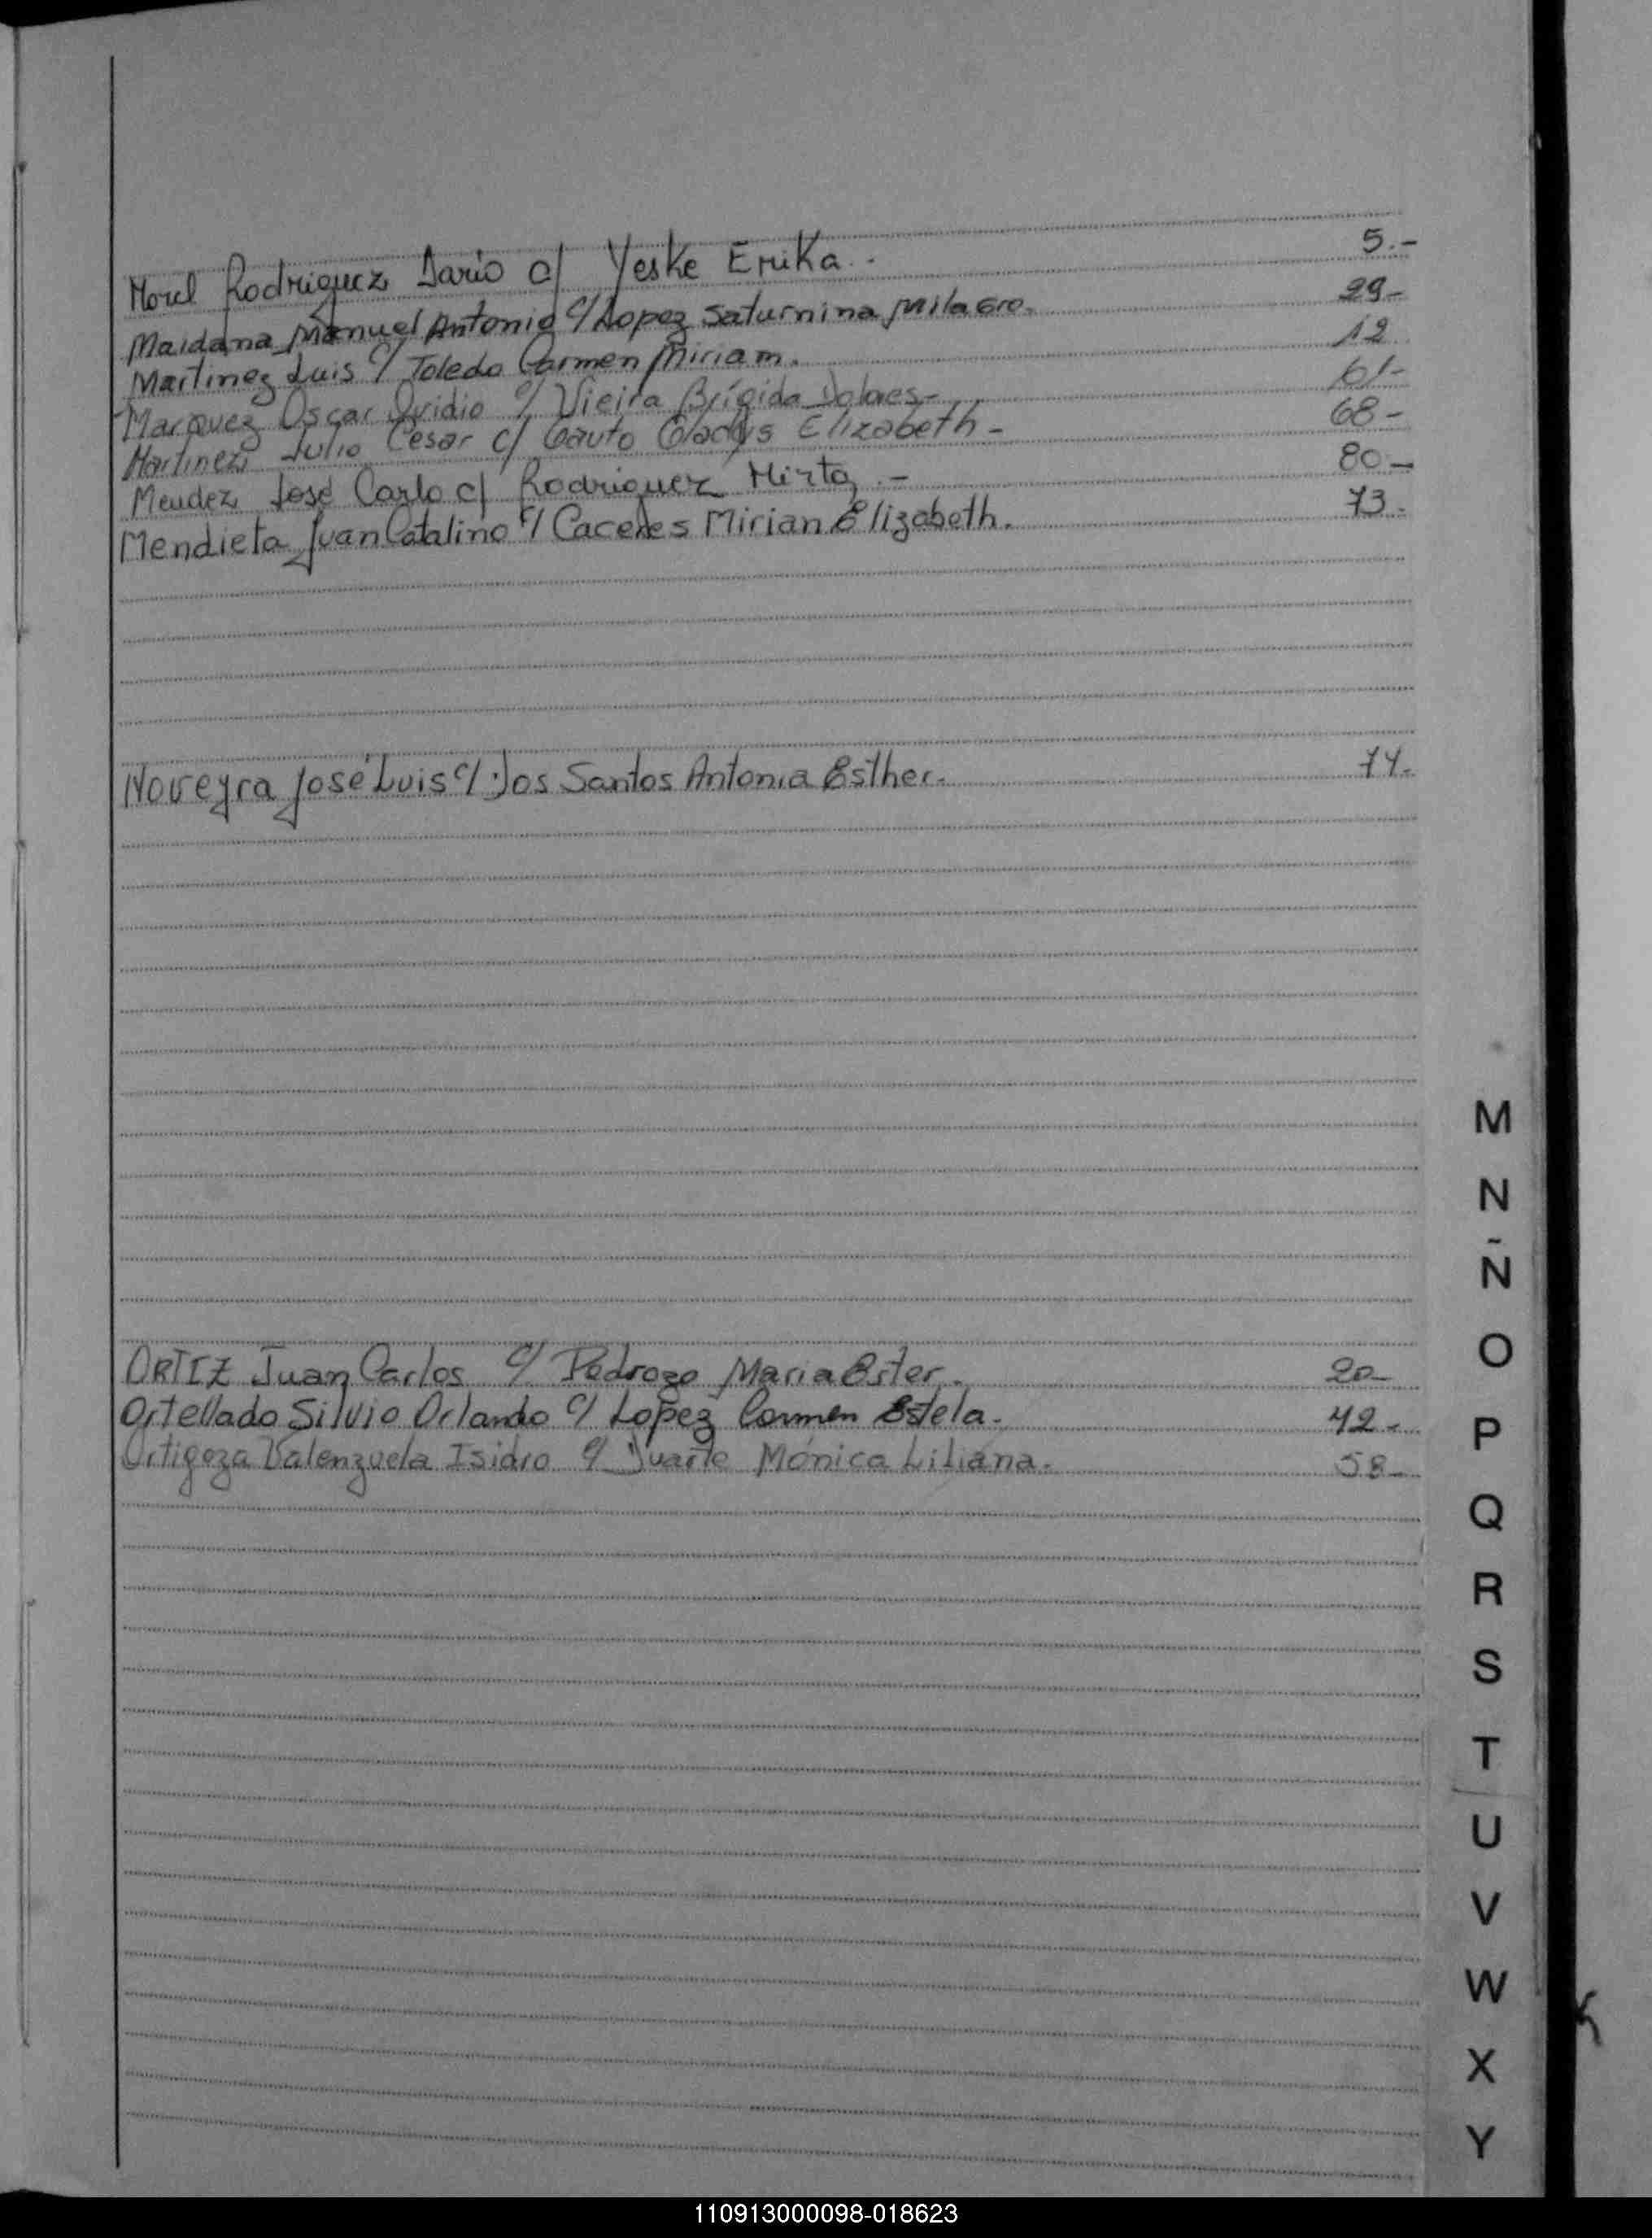 Morel Rodriguez Dario c/ Yeske Erika. 5.-
Maidana Manuel Antonio c/ Lopez Saturnina Milagro. 29-
Martinez Luis c/ Toledo Carmen Miriam. 12
Marquez Oscar Ovidio c/ Vieira Brígida Dolores- 61-
Martinez Julio Cesar c/ Gauto Gladys Elizabeth- 68-
Mendez José Carlo c/ Rodriguez Mirta.- 80-
Mendieta Juan Catalino c/ Caceres Mirian Elizabeth. 73.
Noveyra José Luis c/ Dos Santos Antonia Esther. 74.
ORTIZ Juan Carlos c/ Pedrozo Maria Ester. 20-
Ortellado Silvio Orlando c/ Lopez Carmen Estela. 42-
Ortigoza Valenzuela Isidro c/ Duarte Mónica Liliana. 58-
M
N
Ñ
O
P
Q
R
S
T
U
V
W
X
Y
110913000098-018623